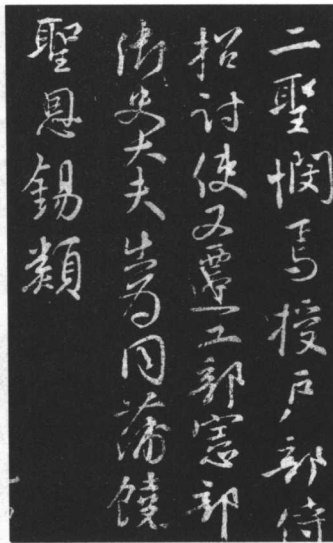 二聖憫焉授戶部侍
招討使又遷工部憲部
御史大夫出為同蒲饒
聖恩錫類